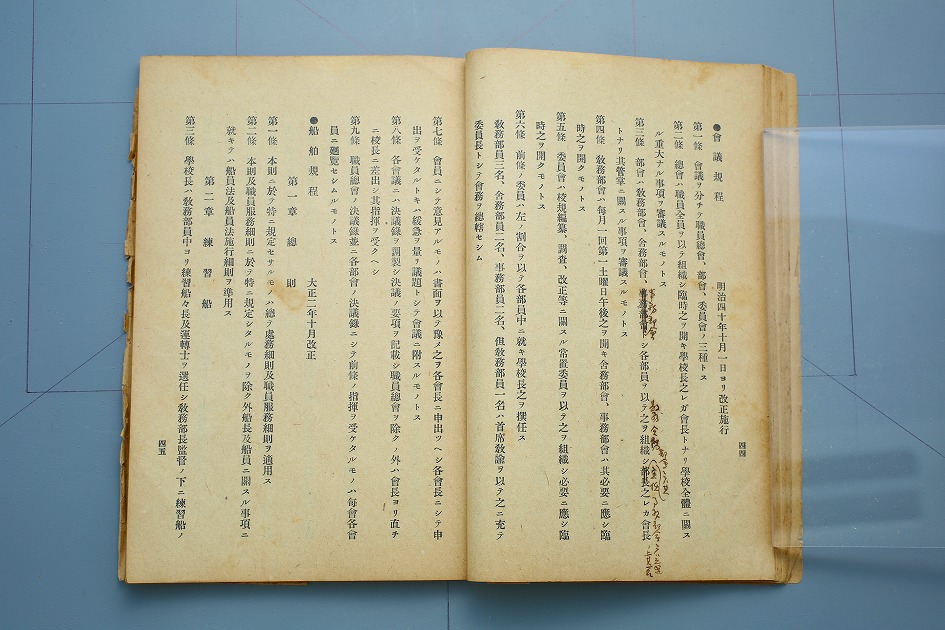 ●會議規程 明治四十年十月一日ヨリ改正施行
第一條 會議ヲ分チテ職員總會、部會、委員會ノ三種トス
第二條 總會ハ職員全員ヲ以テ組織シ臨時之ヲ開キ學校長之レガ會長トナリ學校全體ニ關ス
ル重大ナル事項ヲ審議スルモノトス
第三條 部會ハ敎務部會、舍務部會、事務部會トシ各部員ヲ以テ之ヲ組織シ部長之レガ會長
トナリ其管掌ニ關スル事項ヲ審議スルモノトス
第四條 敎務部會ハ每月一回第一土曜日午後之ヲ開キ舍務部會、事務部會ハ其必要ニ應シ臨
時之ヲ開クモノトス
第五條 委員會ハ校規編纂、調査、改正等ニ關スル常置委員ヲ以テ之ヲ組織シ必要ニ應シ臨
時之ヲ開クモノトス
第六條 前條ノ委員ハ左ノ割合ヲ以テ各部員中ニ就キ學校長之ヲ撰任ス
敎務部員三名、舍務部員二名、事務部員二名、但敎務部員一名ハ首席敎諭ヲ以テ之ニ充テ
委員長トシテ會務ヲ總轄セシム
四四
第七條 會員ニシテ意見アルモノハ書面ヲ以テ豫メ之ヲ各會長ニ申出ツヘシ各會長ニシテ申
出ヲ受ケタルトキハ緩急ヲ量リ議題トシテ會議ニ附スルモノトス
第八條 各會議ニハ決議錄ヲ調製シ決議ノ要項ヲ記載シ職員總會ヲ除クノ外ハ會長ヨリ直チ
ニ校長ニ差出シ其指揮ヲ受クヘシ
第九條 職員總會ノ決議錄並ニ各部會ノ決議錄ニシテ前條ノ指揮ヲ受ケタルモノハ每會各會
員ニ廻覽セシムルモノトス
●船舶規程 大正二年十月改正
第一章 總則
第一條 本則ニ於テ特ニ規定セサルモノハ總テ處務細則及職員服務細則ヲ適用ス
第二條 本則及職員服務細則ニ於テ特ニ規定シタルモノヲ除ク外船長及船員ニ關スル事項ニ
就キテハ船員法及船員法施行細則ヲ準用ス
第二章 練習船
第三條 學校長ハ敎務部員中ヨリ練習船々長及運轉士ヲ選任シ敎務部長監督ノ下ニ練習船ノ
四五